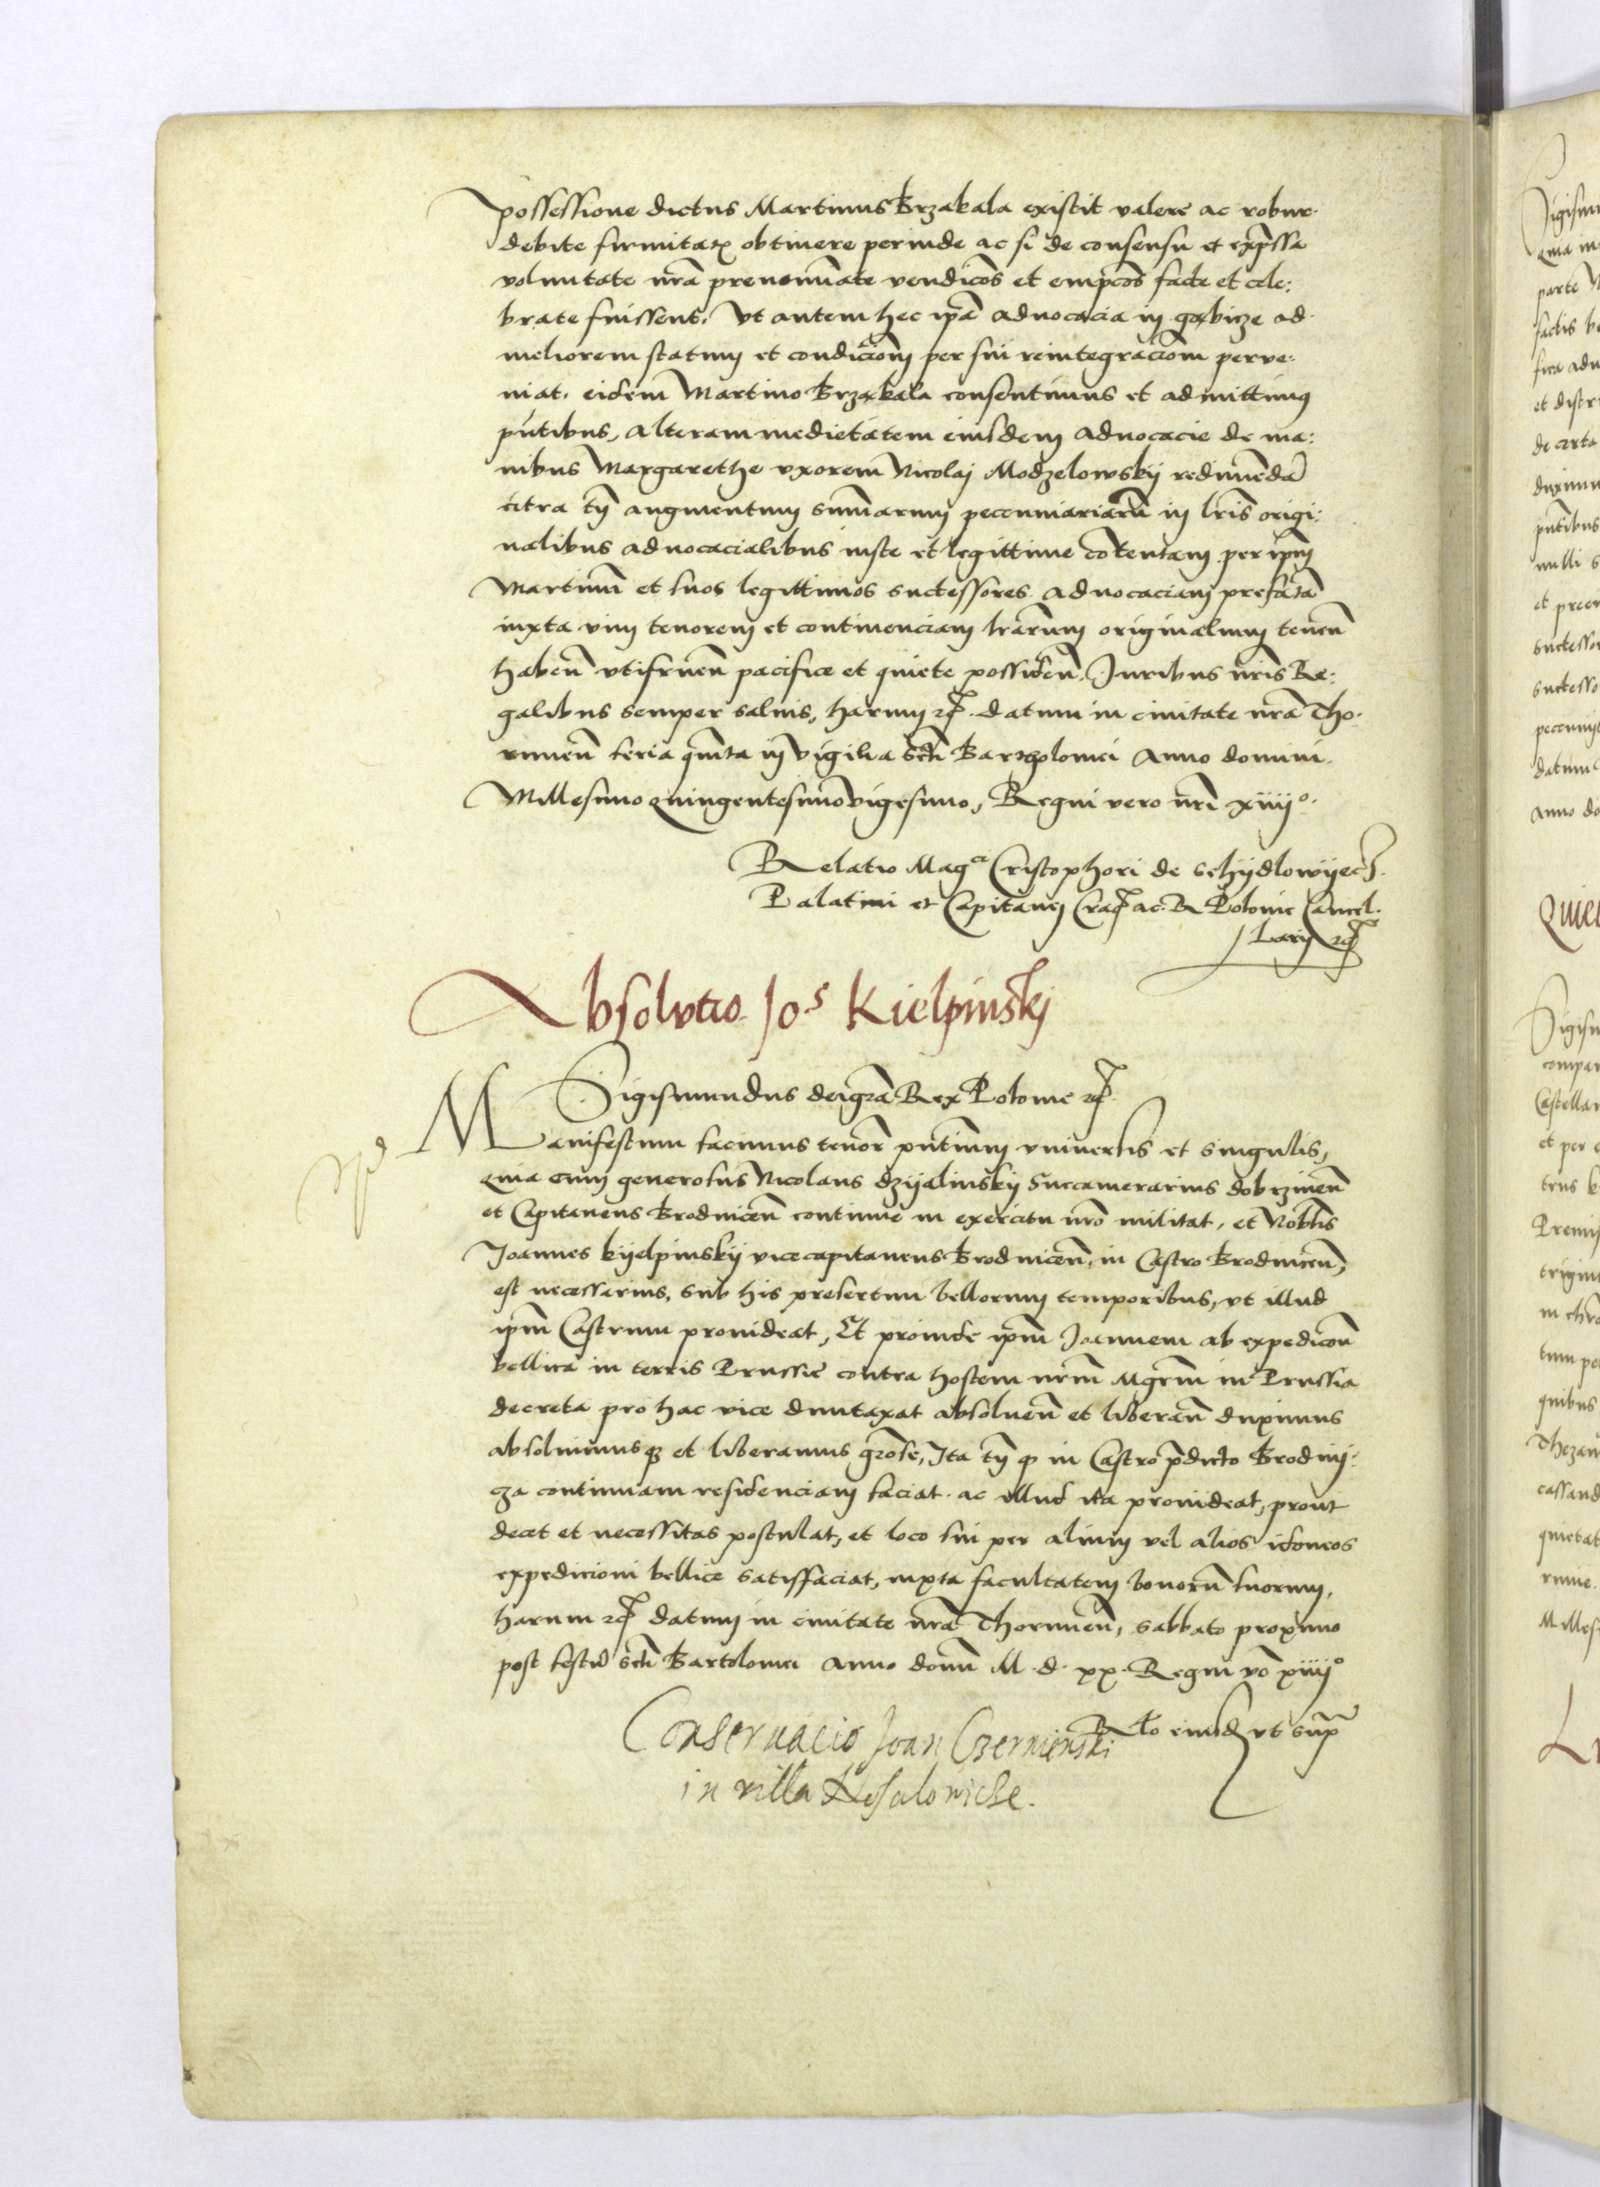 possessione dictus Martinus Brzakala existit valere ac robur
debite firmitatis obtinere perinde ac si de consensu et exp̄ssa
voluntate nr̄a prenominate vendicōs et empcōs facte et cele:
brate fuissent. Ut autem hec ip̄a advocacia in gabicze ad
meliorem statum et condicōnem per sui reintegraciōm perve:
niat. eidem Martino Brzakala consentimus et admittimus
pn̄tibus, alteram medietatem eiusdem advocacie de ma:
nibus Margarethe uxorem Nicolai Modzelowskij redimendā
citra tn̄ augmentum summarum pecuniariarū in lr̄is origi:
nalibus advocacialibus iuste et legittime cōtentam per ipm̄
Martinū et suos legittimos successores advocaciam prefatā
iuxta vim tenorem et continenciam lrārum originalium tenen̄
haben̄ utifruen̄ pacifice et quiete possiden̄. Juribus nr̄is Re:
galibus semper salvis, harum etc. datum in civitate nr̄a Tho.
runien̄ feria quīta in vigilia scti Bartholomei Anno domini
Millesimo quingentesimo vigesimo, Regni vero nr̄i xiiijº.
Relatio Magci Cristophori de Schijdlowijecz
Palatini et Capitanei Crac̄ ac R Polonie Cancel.
larij etc
Absolutio Jo͛s Kielpinskj
Sigismundus dei grā Rex Polonie etc.
Manifestum facimus tenor̄ pn̄tium universis et singulis,
quia cum generosus Nicolaus dzijalinskij Succamerarius dobrzinen̄
et Capitaneus Brodnicen̄ continue in exercitu nr̄o militat, et Nobl̄is
Joannes kijelpinskij vicecapitaneus Brodnicen̄, in Castro Brodnicen̄,
est necessarius, sub his presertim bellorum temporibus, ut illud
ipm̄ Castrum provideat, Et proinde ipm̄ Joannem ab expedicōn
bellica in terris Prussie contra hostem nr̄m Mgr̄m in Prussia
decreta pro hac vice dumtaxat absolven̄ et liberan̄ duximus
absolvimusq; et liberamus grōse, Ita tn̄ q in Castro p̄dicto Brodni:
cza continuam residenciam faciat. ac illud ita provideat, prout
decet et necessitas postulat, et loco sui per alium vel alios idoneos
expedicioni bellice satisfaciat, iuxta facultatem bonorū suorum,
harum etc datum in civitate nr̄a Thorunien̄, sabbato proximo
post festū scti Bartolomei Anno domi M d xx. Regni vo xiiijº
Rlto eiusdē ut supr̄
Conservacio Joan Czernienski
in villa